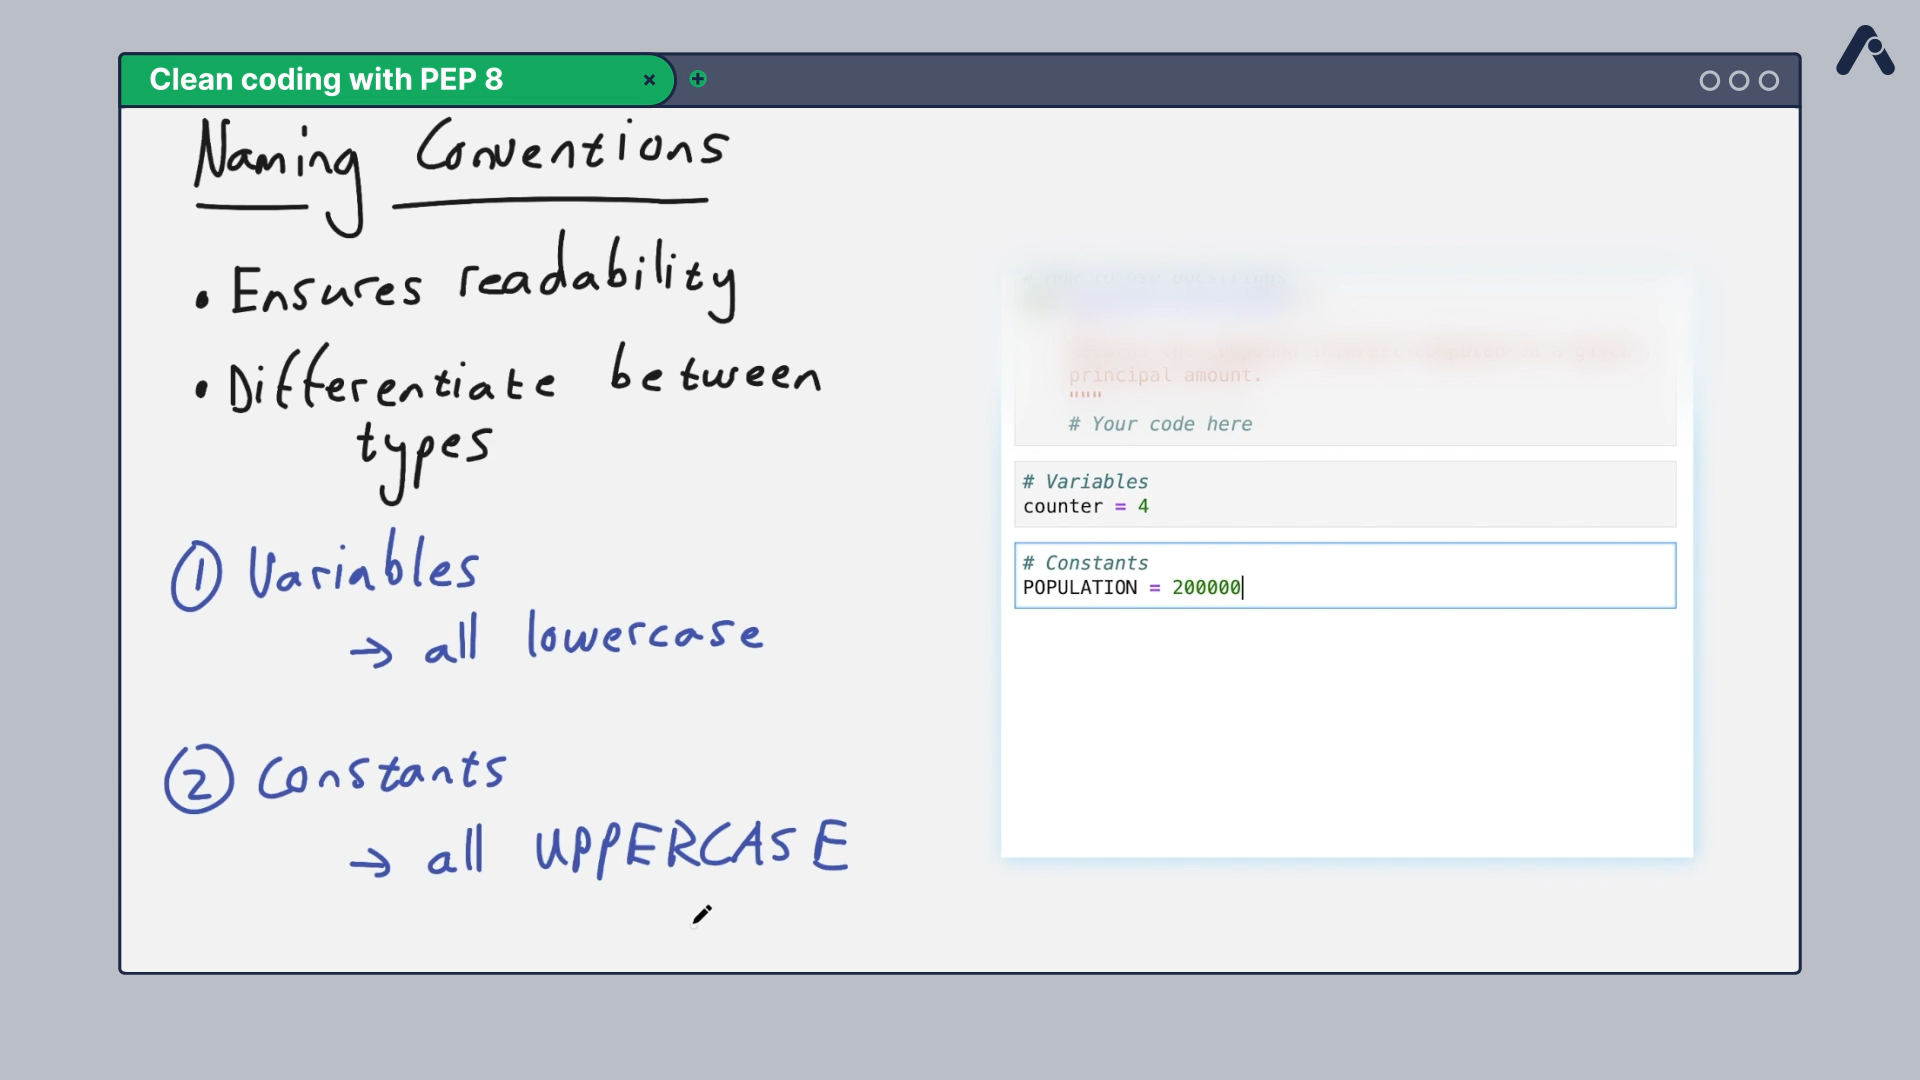 Clean coding with PEP 8
Naming Conventions
• Ensures readability
• Differentiate between
types
① Variables
→ all lowercase
② Constants
→ all UPPERCASE
principal amount.
"""
# Your code here
# Variables
counter = 4
# Constants
POPULATION = 200000